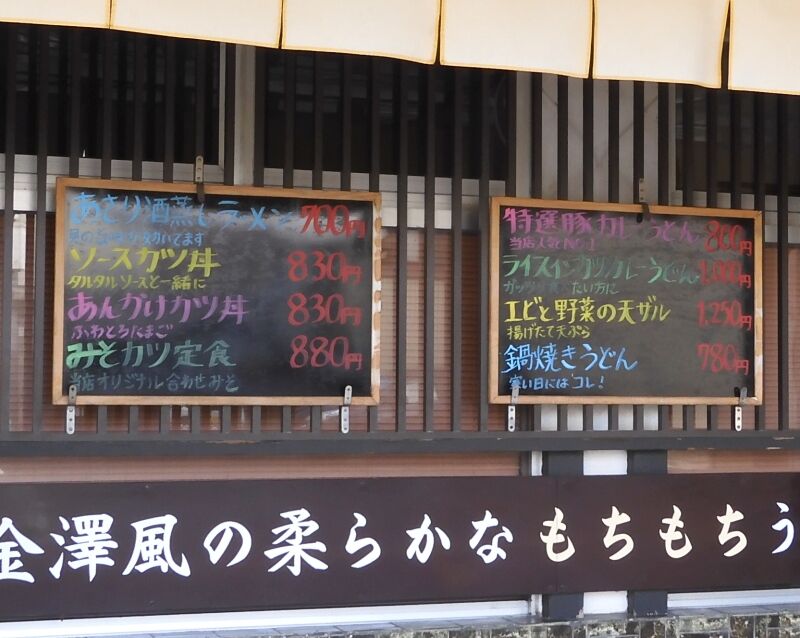 あさり酒蒸しラーメン 700円
ソースカツ丼 830円
タルタルソースと一緒に
あんかけカツ丼 830円
ふわとろたまご
みそカツ定食 880円
当店オリジナル合わせみそ
特選豚カレーうどん 860円
当店人気NO.1
ライスインカツカレーうどん 1,000円
ガッツリ食べたい方に
エビと野菜の天ザル 1,250円
揚げたて天ぷら
鍋焼きうどん 780円
寒い日にはコレ!
金澤風の柔らかなもちもちう